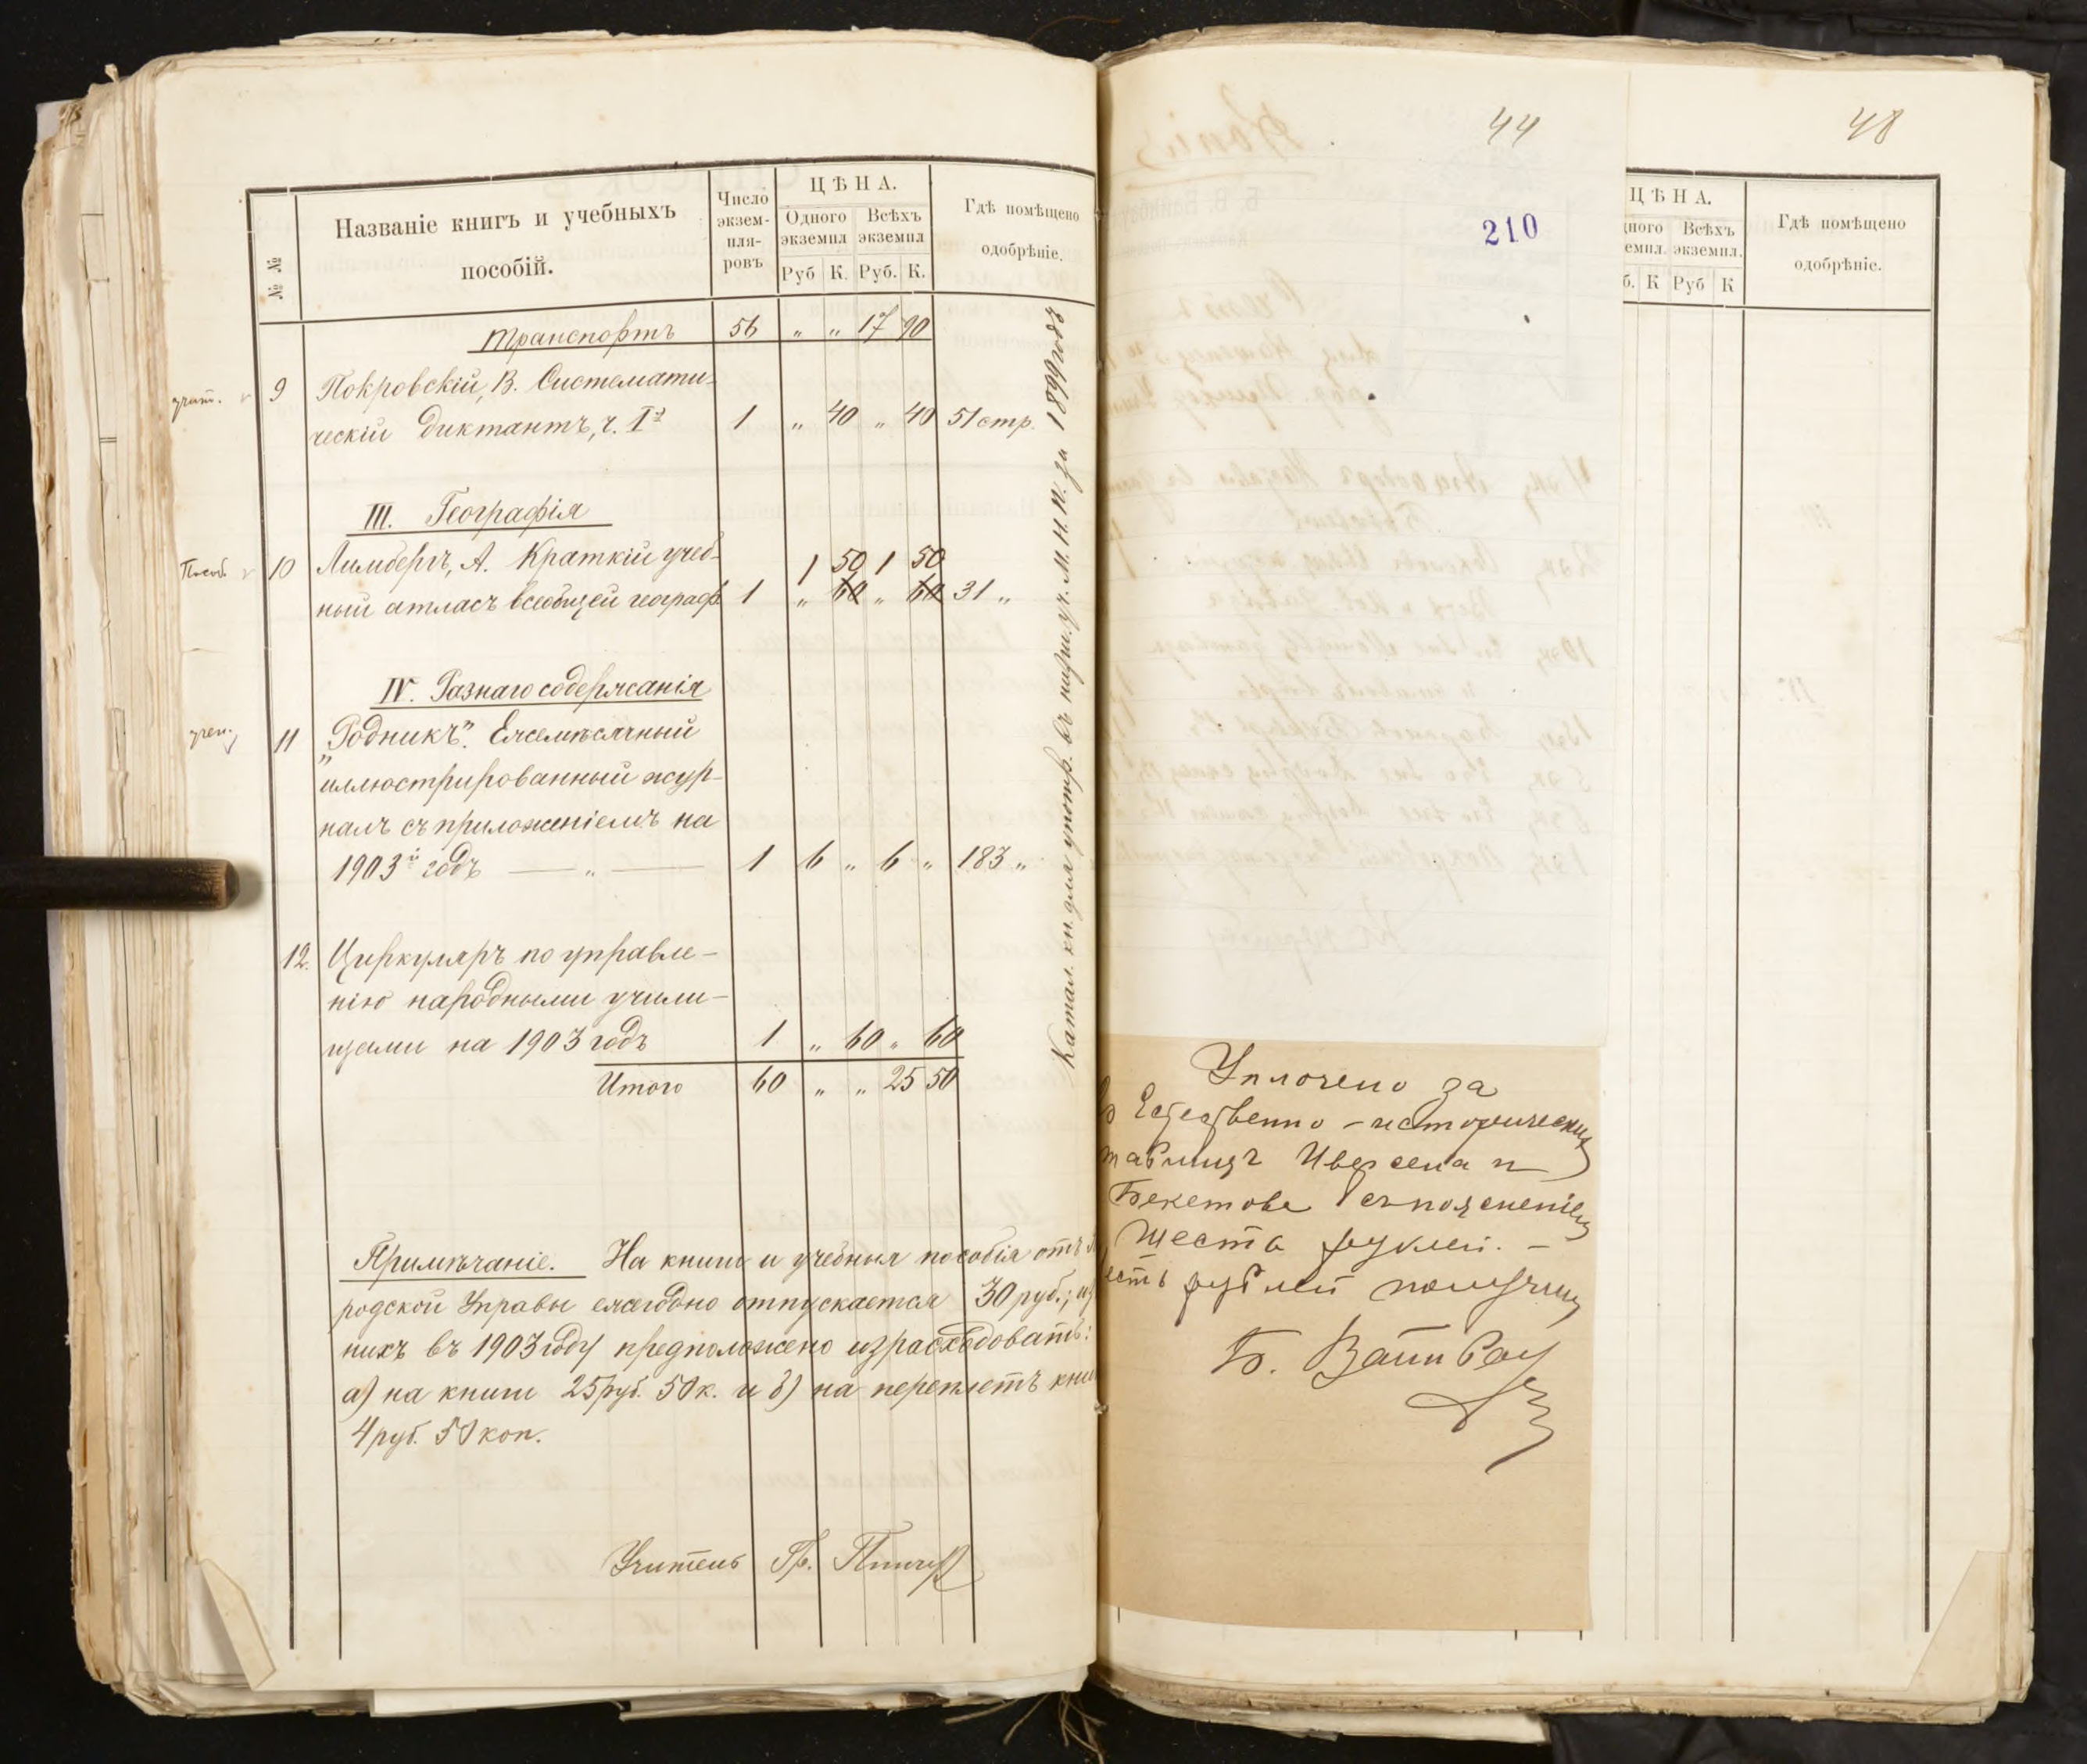 № №
Названіе книгъ и учебныхъ
пособій.
Число
экзем-
пля-
ровъ
ЦѢНА.
Одного
экземпл
Всѣхъ
экземпл
Руб К. Руб. К.
Гдѣ помѣщено
одобрѣніе.
Транспортъ 56 „ „ 17 90
9 Покровскій, В. Системати-
ческій диктантъ, ч. Iя 1 „ 40 „ 40 51 стр.
III. Географія
Пособ. 10 Лимбергъ, А. Краткій учеб- 1 50 1 50
ный атласъ всеобщей географ 1 „ 60 „ 60 31 „
IV. Разнаго содержанія
учен. 11 „Родникъ”. Ежемѣсячный
иллюстрированный жур-
налъ съ приложеніемъ на
1903й годъ — „ — 1 6 „ 6 „ 183 „
12. Циркуляръ по управле-
нію народными учили-
щами на 1903 годъ 1 „ 60 „ 60
Итого 60 „ „ 25 50
Катал. кн. для употр. въ низш. уч. М.Н.П. за 1899 годъ
Примѣчаніе. На книги и учебныя пособія отъ
родской Управы ежегодно отпускается 30 руб.; из
нихъ въ 1903 году предположено израсходовать:
а) на книги 25 руб. 50 к. и б) на переплетъ книг
4 руб. 50 коп.
Учитель Гр.
44
210
Уплочено за
Естественно-исторических
таблицъ Иверсена и
Бекетова съ поясненіем
шесть рублей. —
есть рублей получил
Б. Вайнбау
48
ЦѢНА.
дного
емпл.
Всѣхъ
экземпл.
б. К Руб К
Гдѣ помѣщено
одобрѣніе.